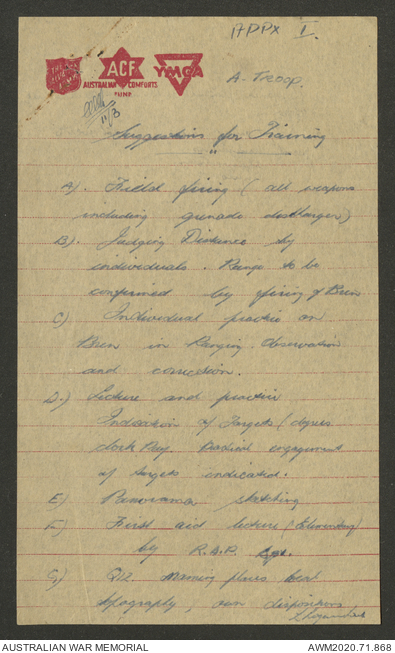 17PPX I.
THE SALVATION ARMY
ACF
YMCA
AUSTRALIAN COMFORTS
FUND
A. Troop.
11/3
Suggestions for Training
A). Field firing (all weapons
including grenade discharger)
B). Judging Distance by
individuals. Range to be
confirmed by firing of Bren
C) Individual practice on
Bren in Ranging, Observation
and correction.
D.) Lecture and practice
Indication of Targets (degrees
clock Ray. Practical engagement
of targets indicated.
E) Panorama sketching
F) First aid lecture (Elementary)
by R.A.P. Cpl.
G) Quiz naming places local
topography, own dispositions
AUSTRALIAN WAR MEMORIAL
AWM2020.71.868